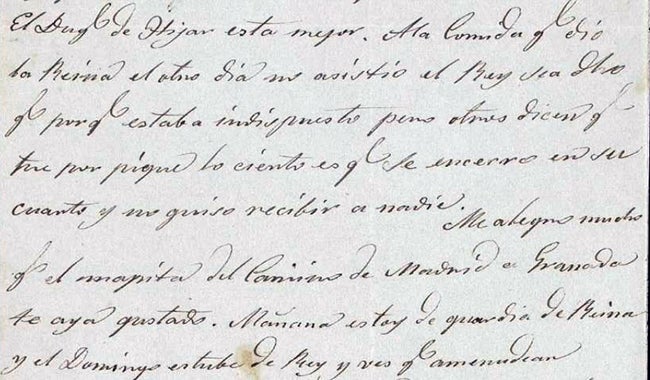 El Duqe de Hijar esta mejor. A la Comida qe dio
la Reina el otro dia no asistio el Rey sea dho
qe porqe estaba indispuesto pero otros dicen qe
fue por pique lo ciento es qe se encerro en su
cuanto y no quiso recibir a nadie. Me alegro mucho
qe el mapita del Camino de Madrid a Granada
te aya gustado. Mañana estoy de guardia de Reina
y el Domingo estube de Rey y ves qe amenudean